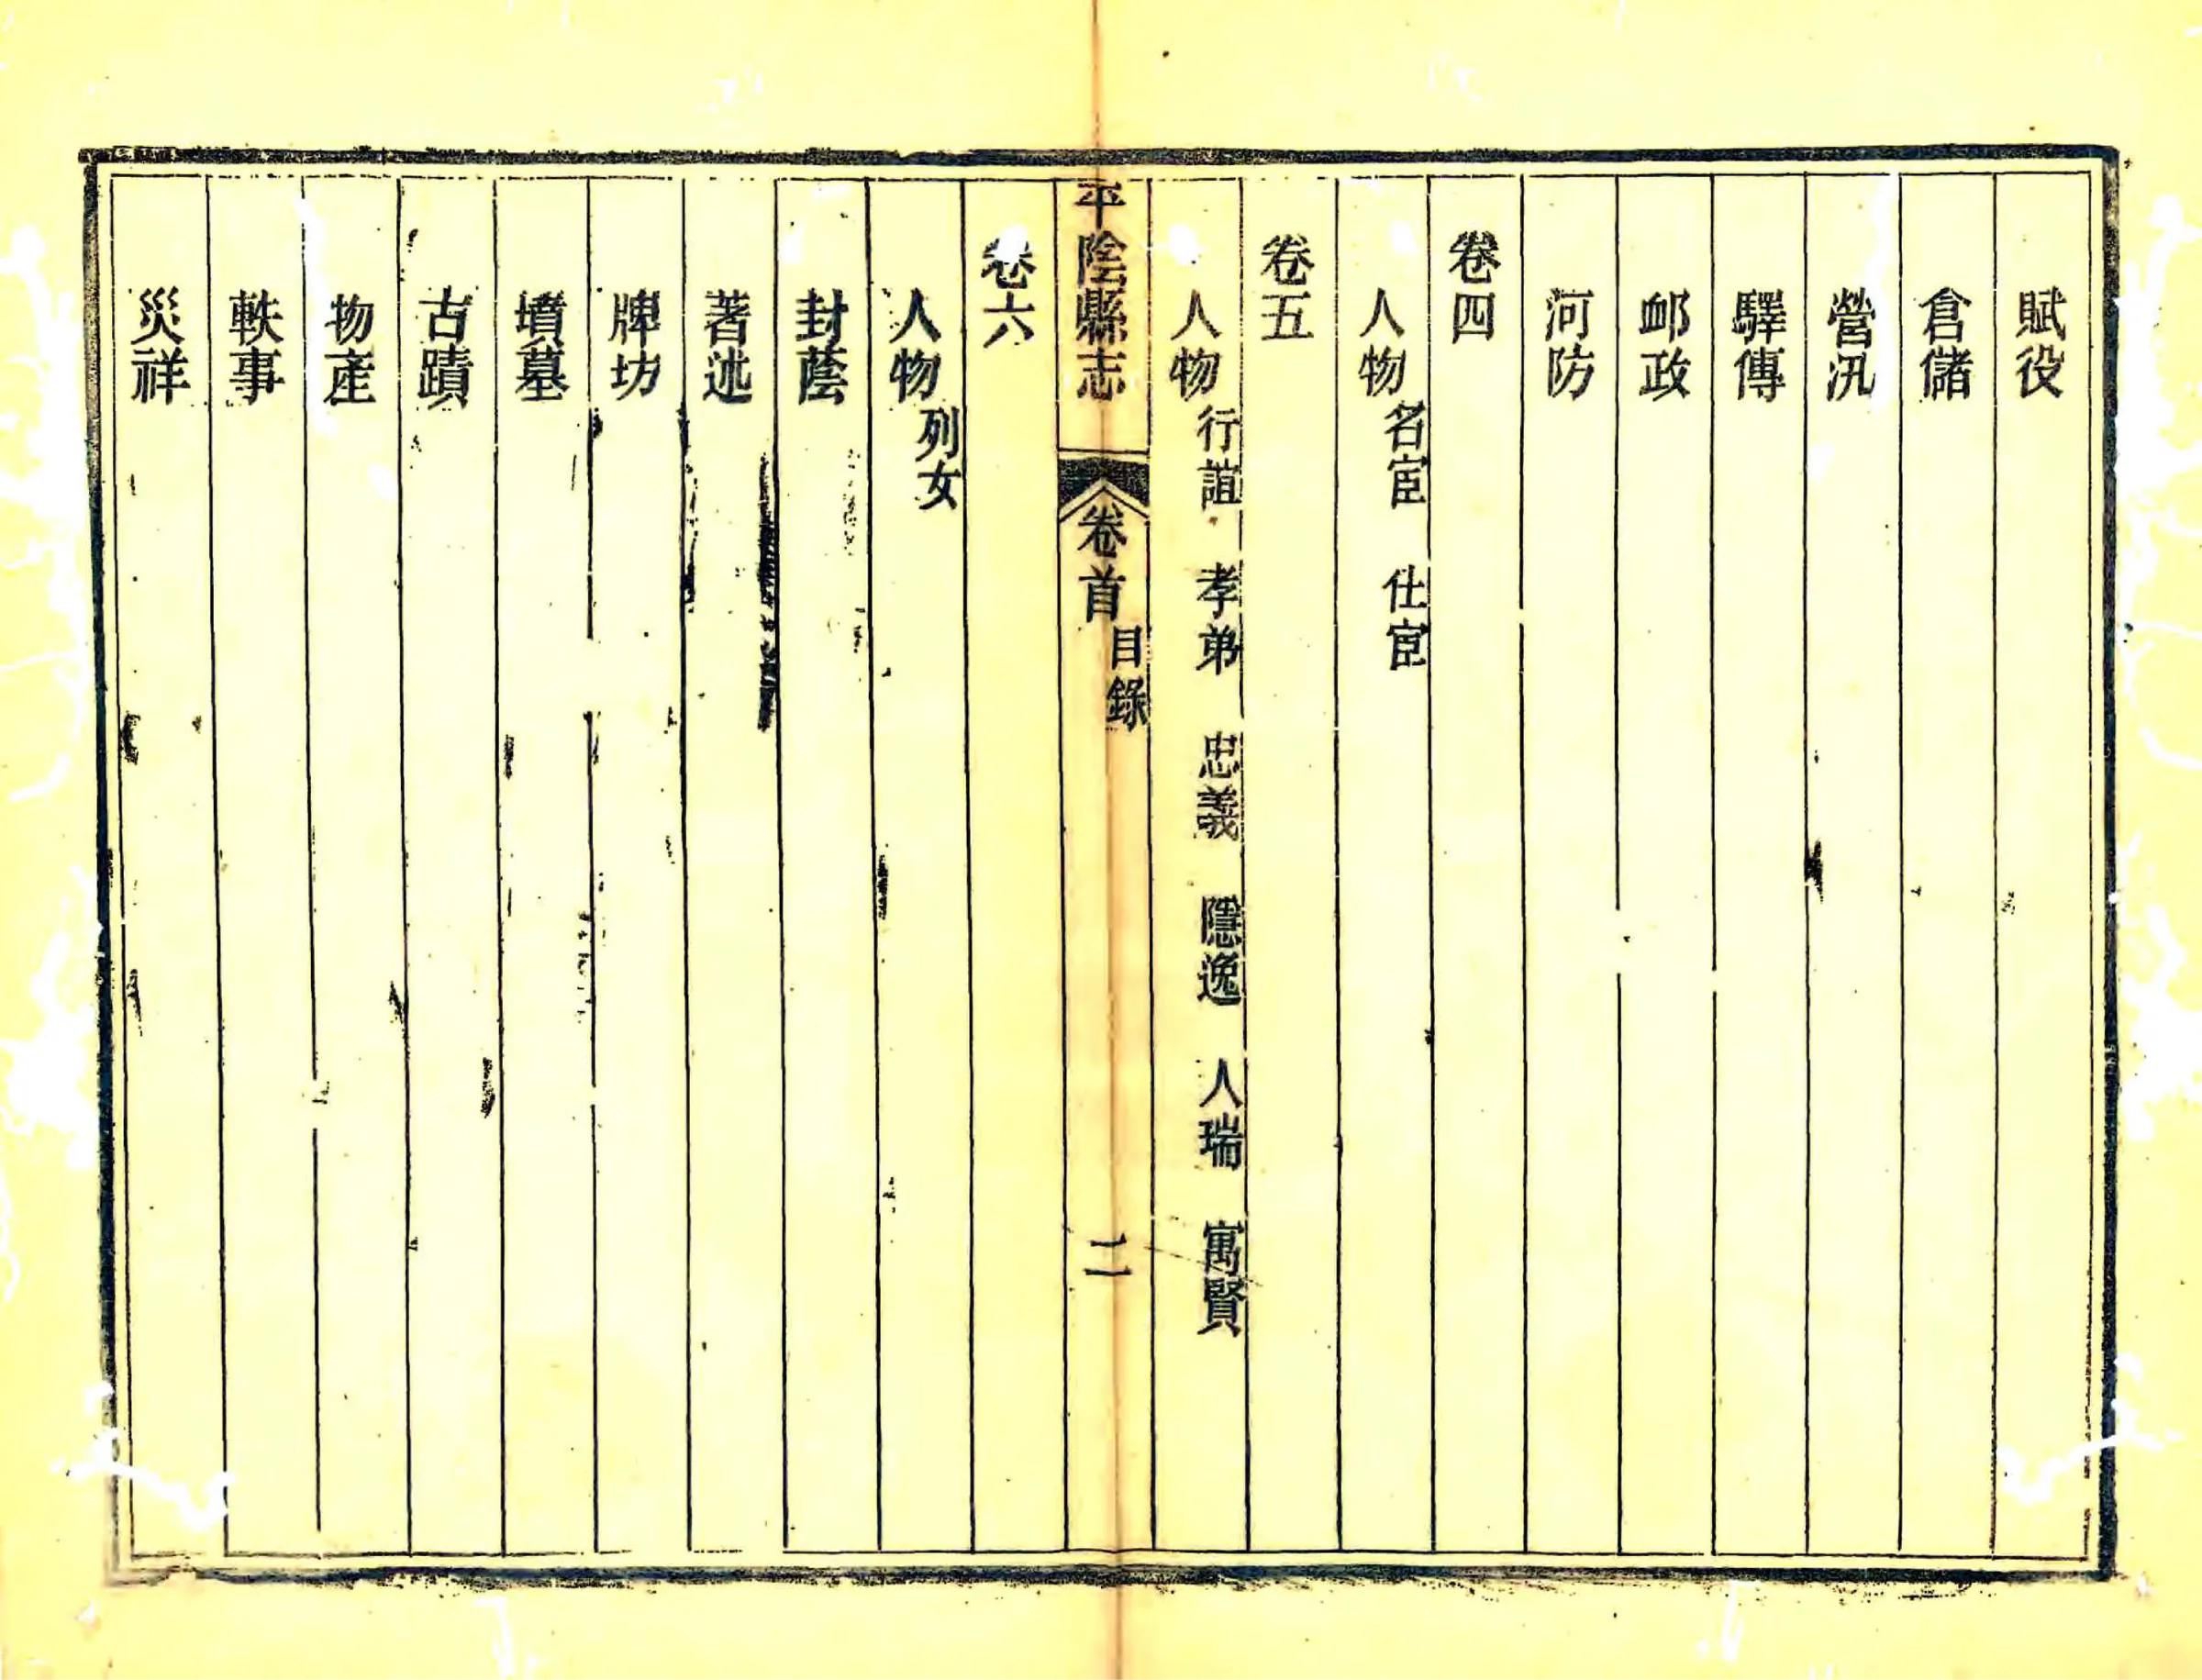 賦役
倉儲
營汛
驛傳
卹政
河防
卷四
人物 名宦 仕宦
卷五
人物 行誼 孝弟 忠義 隱逸 人瑞 寓賢
平陰縣志 卷首 目錄 二
卷六
人物 列女
封蔭
著述
牌坊
墳墓
古蹟
物產
軼事
災祥